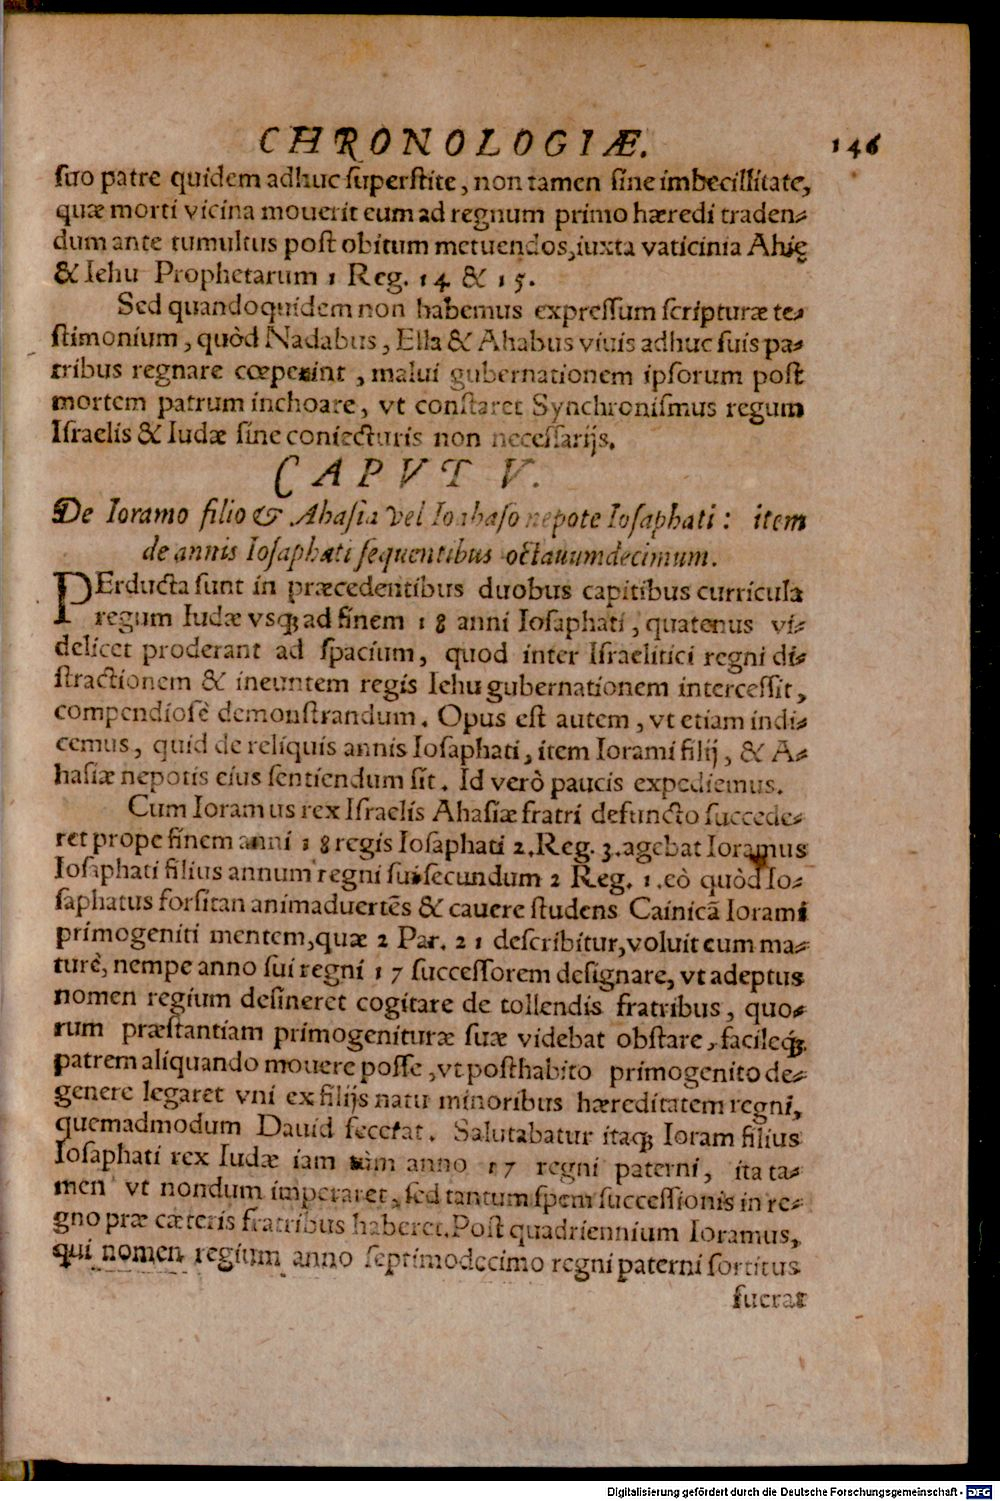 CHRONOLOGIÆ. 146
suo patre quidem adhuc superstite, non tamen sine imbecillitate,
quæ morti vicina mouerit eum ad regnum primo hæredi traden-
dum ante tumultus post obitum metuendos, iuxta vaticinia Ahię
& Iehu Prophetarum 1 Reg. 14 & 15.
Sed quandoquidem non habemus expressum scripturæ te-
stimonium, quòd Nadabus, Ella & Ahabus viuis adhuc suis pa-
tribus regnare cœperint, malui gubernationem ipsorum post
mortem patrum inchoare, vt constaret Synchronismus regum
Israelis & Iudæ sine coniecturis non necessarijs.
CAPVT V.
De Ioramo filio & Ahasia vel Ioahaso nepote Iosaphati: item
de annis Iosaphati sequentibus octauumdecimum.
PErducta sunt in præcedentibus duobus capitibus curricula
regum Iudæ vsqꝫ ad finem 18 anni Iosaphati, quatenus vi-
delicet proderant ad spacium, quod inter Israelitici regni di-
stractionem & ineuntem regis Iehu gubernationem intercessit,
compendiosè demonstrandum. Opus est autem, vt etiam indi-
cemus, quid de reliquis annis Iosaphati, item Iorami filij, & A-
hasiæ nepotis eius sentiendum sit. Id verò paucis expediemus.
Cum Ioramus rex Israelis Ahasiæ fratri defuncto succede-
ret prope finem anni 18 regis Iosaphati 2. Reg. 3. agebat Ioramus
Iosaphati filius annum regni sui secundum 2 Reg. 1. eò quòd Io-
saphatus forsitan animaduertēs & cauere studens Cainicā Iorami
primogeniti mentem, quæ 2 Par. 21 describitur, voluit eum ma-
turè, nempe anno sui regni 17 successorem designare, vt adeptus
nomen regium desineret cogitare de tollendis fratribus, quo-
rum præstantiam primogenituræ suæ videbat obstare, facileqꝫ
patrem aliquando mouere posse, vt posthabito primogenito de-
genere legaret vni ex filijs natu minoribus hæreditatem regni,
quemadmodum Dauid fecerat. Salutabatur itaqꝫ Ioram filius
Iosaphati rex Iudæ iam anno 17 regni paterni, ita ta-
men vt nondum imperaret, sed tantum spem successionis in re-
gno præ cæteris fratribus haberet. Post quadriennium Ioramus,
qui nomen regium anno septimodecimo regni paterni sortitus
fuerat
Digitalisierung gefördert durch die Deutsche Forschungsgemeinschaft - DFG